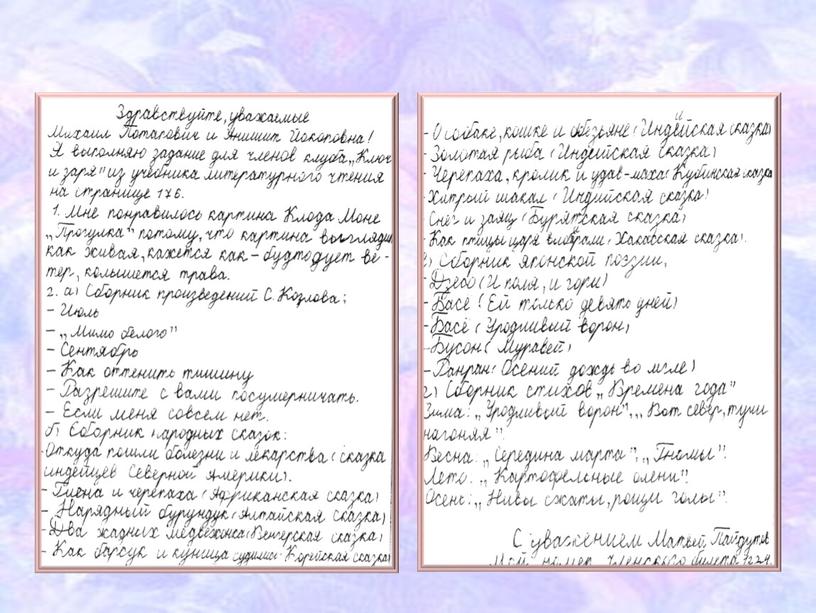 Здравствуйте, уважаемые
Михаил Потапович и Анишит Йокоповна!
Я выполняю задание для членов клуба „Ключ
и заря" из учебника литературного чтения
на странице 176.
1. Мне понравилось картина Клода Моне
„Прогулка" потому, что картина выглядит
как живая, кажется как-будто дует ве-
тер, колышется трава.
2. а) Сборник произведений С. Козлова:
- Июль
- „Мимо белого"
- Сентябрь
- Как оттенить тишину
- Разрешите с вами посумерничать.
- Если меня совсем нет.
б) Сборник народных сказок:
-Откуда пошли болезни и лекарства (сказка
индейцев Северной Америки).
- Гиена и черепаха (Африканская сказка)
- Нарядный бурундук (Алтайская сказка)
- Два жадных медвежонка (Венгерская сказка)
- Как барсук и куница судились (Корейская сказка)
- О собаке, кошке и обезьяне (Индийская сказка)
- Золотая рыба (Индейская сказка)
- Черепаха, кролик и удав-маха (Кубинская сказка
- Хитрый шакал (Индийская сказка)
- Снег и заяц (Бурятская сказка)
- Как птицы царя выбрали (Хакасская сказка).
в) Сборник японской поэзии.
- Дзёсо (И поля, и горы)
- Басё (Ей только девять дней)
- Басё (Уродливый ворон)
- Бусон (Муравей)
- Ранран (Осений дождь во мгле)
г) Сборник стихов „Времена года"
Зима: „Уродливый ворон", „Вот север, тучи
нагоняя".
Весна: „Середина марта", „Гномы".
Лето: „Картофельные олени".
Осень: „Нивы сжаты, рощи голы".
С уважением Матвей
Мой номер членского билета 1224